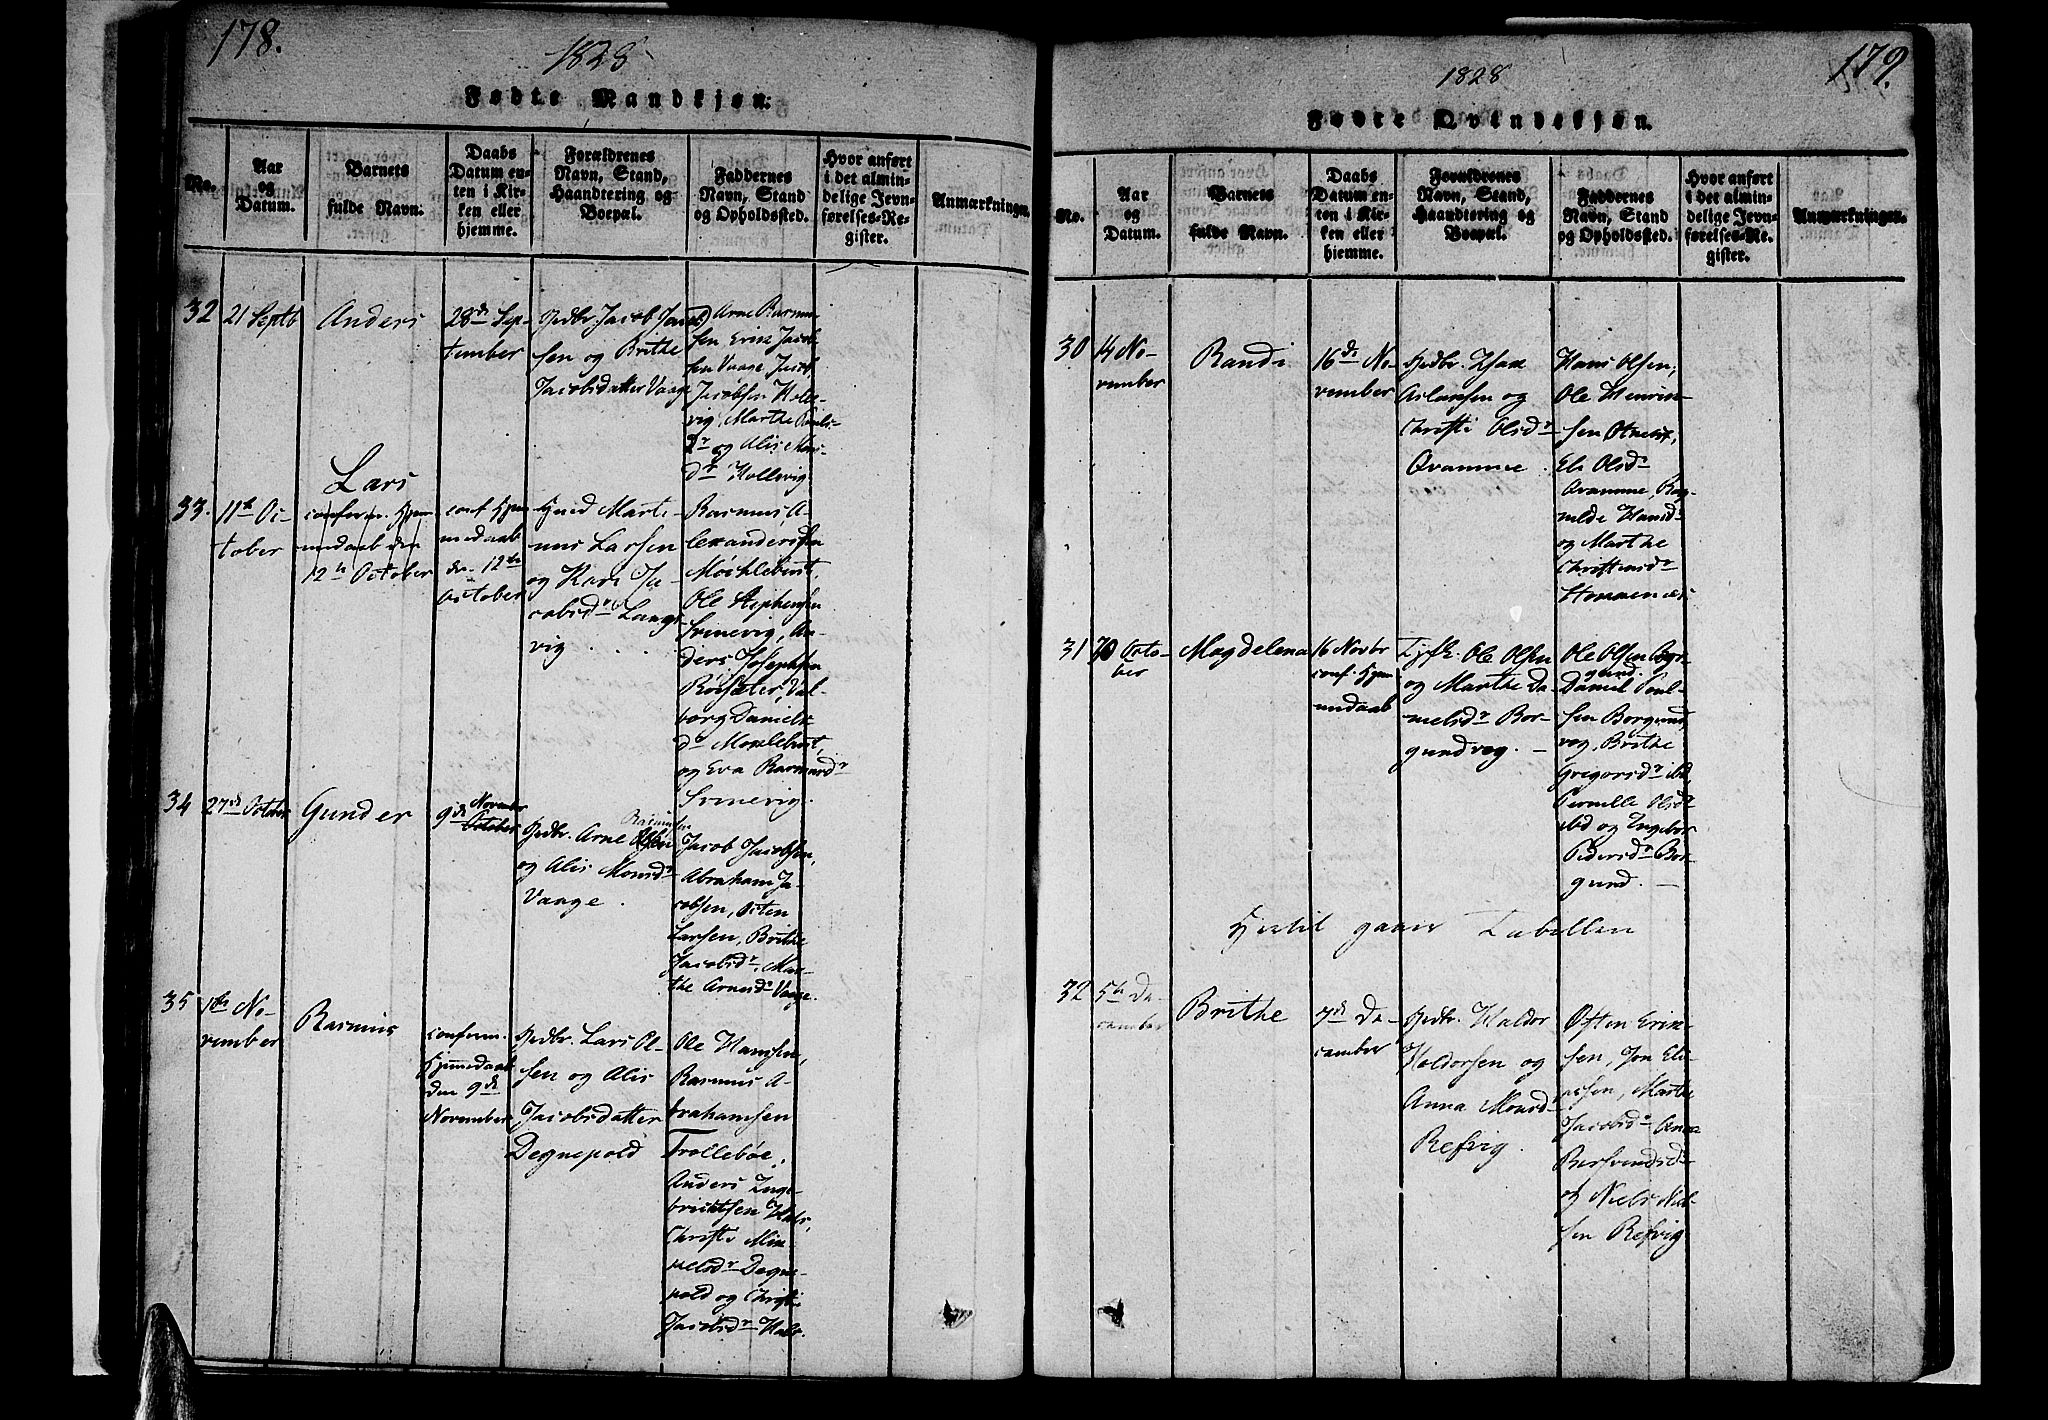 178.
1828
Fødte Mandkjøn.
No.
Aar
og
Datum.
Barnets
fulde Navn.
Daabs
Datum en-
ten i Kir-
ken eller
hjemme.
Forældrenes
Navn, Stand,
Haandtering og
Boepæl.
Faddernes
Navn, Stand
og Opholdssted.
Hvor anført
i det almin-
delige Jevn-
førelses-Re-
gister.
Anmærkninger.
32
21 Septb
Anders
28de Sep-
tember
Gdbr. Jacob
sen og Brithe
Jacobsdatter Vaage
Arne Rasmu-
sen Erik Jacob
sen Vaage, Jacob
Jacobsen
vig, Marthe
og Alis Mons
dr Hollevig.
33.
11te Oc-
tober
Lars
conferm. Hjem-
medaab den
12te October
conf Hjem
medaab
den 12te
October
Marti-
nus Larsen
og Kari Ja-
cobsdr Langs-
vig
Rasmus A-
lexandersen
Ole Stephensen
Srinevig, An-
ders Josephsen
Val-
borg Daniels-
dr
og Eva Rasmusdr
Srinevig.
34
27de October
Gunder
9de November
October
Gdbr. Arne Rasmusen
Olsen
og Alis Monsdr
Vaage.
Jacob Jacobsen,
Abraham Ja-
cobsen, Osten
Larsen, Brithe
Jacobsdr, Mar-
the Arnesdr Vaage.
35
1ste No-
vember
Rasmus
conferm.
Hjemmedaab
den 9de
November
Gdbr. Lars Ol-
sen og Alis
Jacobsdatter
Degnepold
Ole Hansen,
Rasmus A-
brahamsen
Trollebøe,
Anders Inge-
brichtsen Hals,
Christi Mik-
kelsdr Degne-
pold og Christi
Jacobsdr Hals.
179.
1828
Fødte Qvindekjøn.
No.
Aar
og
Datum.
Barnets
fulde Navn.
Daabs
Datum en-
ten i Kir-
ken eller
hjemme.
Forældrenes
Navn, Stand,
Haandtering og
Boepæl.
Faddernes
Navn, Stand
og Opholdssted.
Hvor anført
i det almin-
delige Jevn-
førelses-Re-
gister.
Anmærkninger.
30
14 No-
vember
Randi
16de No-
vember
Gdbr. Isak
Aslaksen og
Christi Olsdr
Qvamme.
Hans Olsen,
Ole Henrik-
sen Otneset,
Eli Olsdr
Qvamme, Rag-
nilde Hansdr
og Marthe
Christensdr
Hommenæs.
31
Octo-
ber
Magdelena
16 Novbr
conf. Hjem
medaab
Ole Olsen
og Marthe Da-
nielsdr Bor-
gundvog.
Ole Olsen Bor-
gund.
Daniel Poul-
sen Borgund-
vog, Brithe
Grigorsdr ibd,
Pernille Olsdr
ibd og Ingebor
Pedersdr Bor-
gund.
Hertil gaaer Tabellen
32
5te De-
cember
Brithe
7de De-
cember
Gdbr. Haldor
Haldorsen og
Anna Monsdr
Refvig.
Osten Erik-
sen, Jon Eli-
assen, Marthe
Jacobsdr Anna
og Niels Niel-
sen Refvig